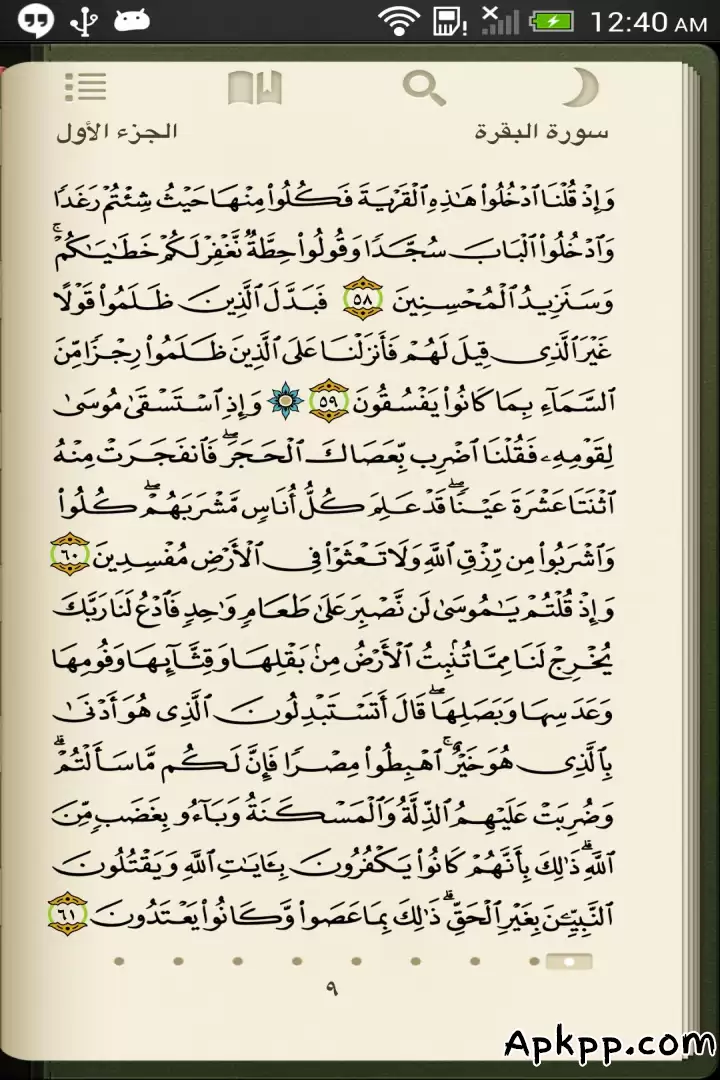 12:40 AM
سورة البقرة
الجزء الأول
وَإِذْ قُلْنَا ٱدْخُلُوا۟ هَـٰذِهِ ٱلْقَرْيَةَ فَكُلُوا۟ مِنْهَا حَيْثُ شِئْتُمْ رَغَدًا
وَٱدْخُلُوا۟ ٱلْبَابَ سُجَّدًا وَقُولُوا۟ حِطَّةٌ نَّغْفِرْ لَكُمْ خَطَـٰيَـٰكُمْ ۚ
وَسَنَزِيدُ ٱلْمُحْسِنِينَ ٥٨ فَبَدَّلَ ٱلَّذِينَ ظَلَمُوا۟ قَوْلًا
غَيْرَ ٱلَّذِى قِيلَ لَهُمْ فَأَنزَلْنَا عَلَى ٱلَّذِينَ ظَلَمُوا۟ رِجْزًا مِّنَ
ٱلسَّمَآءِ بِمَا كَانُوا۟ يَفْسُقُونَ ٥٩ وَإِذِ ٱسْتَسْقَىٰ مُوسَىٰ
لِقَوْمِهِۦ فَقُلْنَا ٱضْرِب بِّعَصَاكَ ٱلْحَجَرَ ۖ فَٱنفَجَرَتْ مِنْهُ
ٱثْنَتَا عَشْرَةَ عَيْنًا ۖ قَدْ عَلِمَ كُلُّ أُنَاسٍ مَّشْرَبَهُمْ ۖ كُلُوا۟
وَٱشْرَبُوا۟ مِن رِّزْقِ ٱللَّهِ وَلَا تَعْثَوْا۟ فِى ٱلْأَرْضِ مُفْسِدِينَ ٦٠
وَإِذْ قُلْتُمْ يَـٰمُوسَىٰ لَن نَّصْبِرَ عَلَىٰ طَعَامٍ وَٰحِدٍ فَٱدْعُ لَنَا رَبَّكَ
يُخْرِجْ لَنَا مِمَّا تُنۢبِتُ ٱلْأَرْضُ مِنۢ بَقْلِهَا وَقِثَّآئِهَا وَفُومِهَا
وَعَدَسِهَا وَبَصَلِهَا ۖ قَالَ أَتَسْتَبْدِلُونَ ٱلَّذِى هُوَ أَدْنَىٰ
بِٱلَّذِى هُوَ خَيْرٌ ۚ ٱهْبِطُوا۟ مِصْرًا فَإِنَّ لَكُم مَّا سَأَلْتُمْ ۗ
وَضُرِبَتْ عَلَيْهِمُ ٱلذِّلَّةُ وَٱلْمَسْكَنَةُ وَبَآءُو بِغَضَبٍ مِّنَ
ٱللَّهِ ۗ ذَٰلِكَ بِأَنَّهُمْ كَانُوا۟ يَكْفُرُونَ بِـَٔايَـٰتِ ٱللَّهِ وَيَقْتُلُونَ
ٱلنَّبِيِّـۧنَ بِغَيْرِ ٱلْحَقِّ ۗ ذَٰلِكَ بِمَا عَصَوا۟ وَّكَانُوا۟ يَعْتَدُونَ ٦١
٩
Apkpp.com